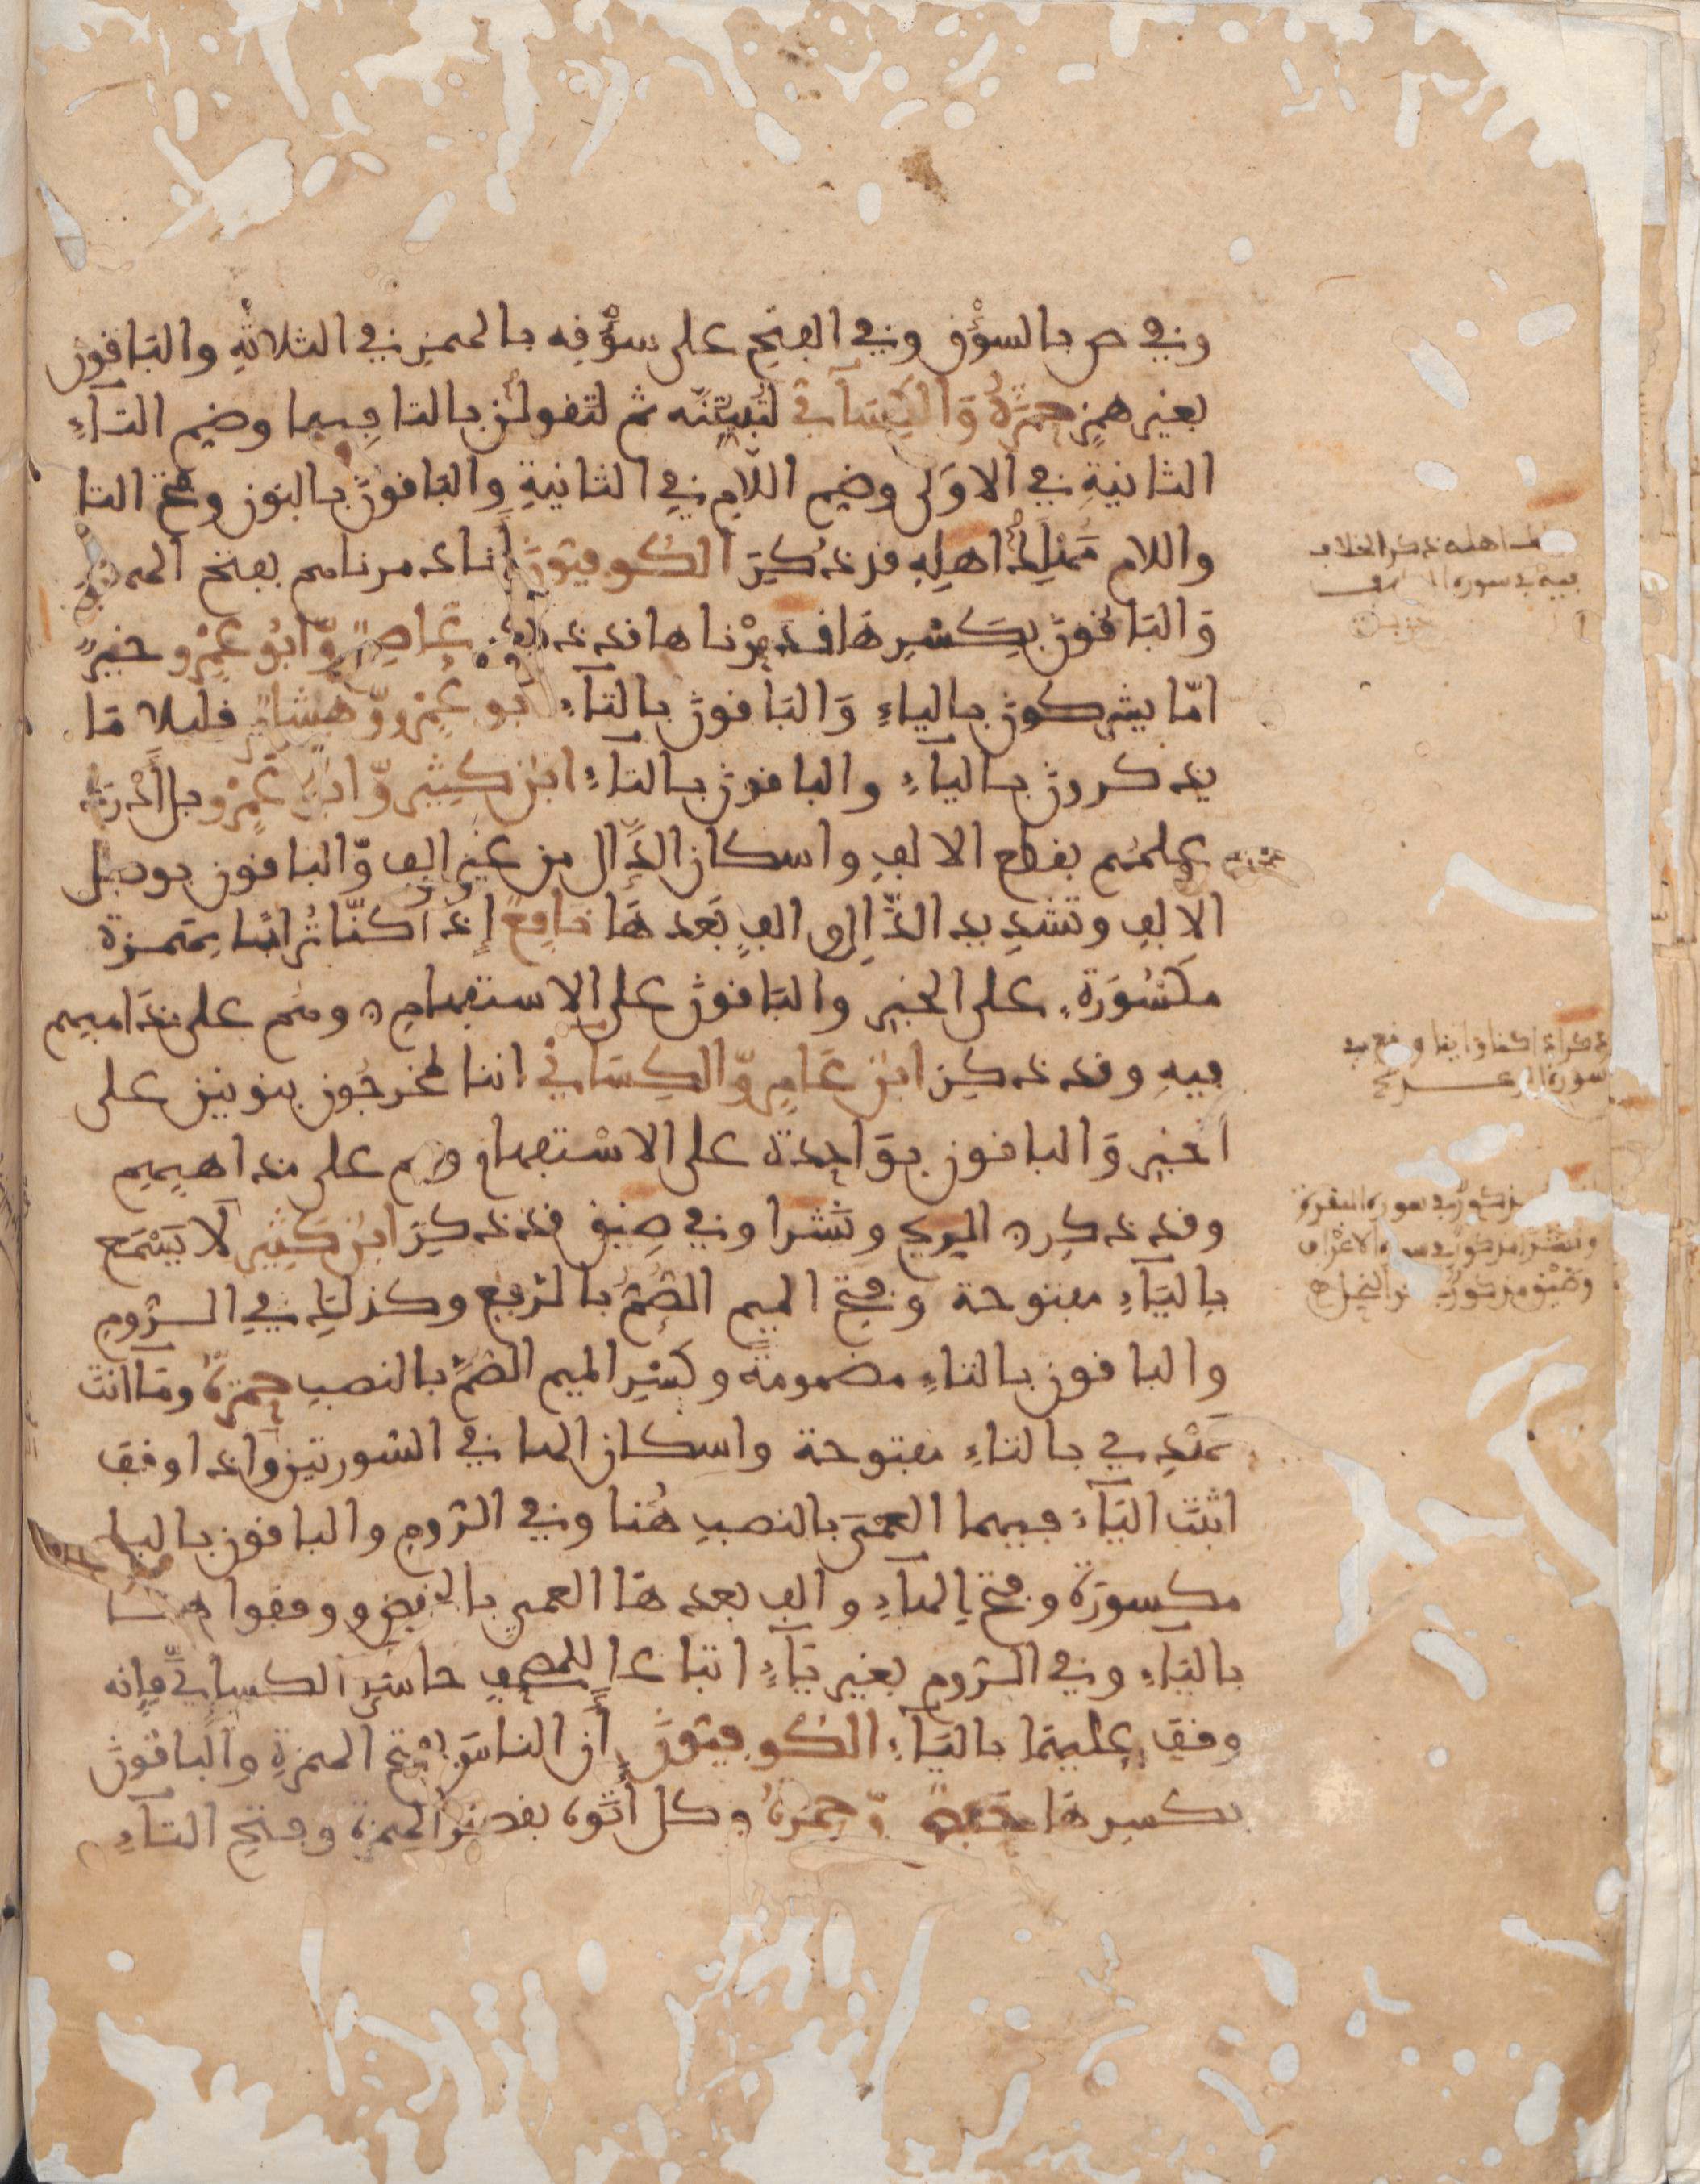 وفي ص بالسؤق وفي الفتح على سؤقه بالهمز في الثلاثة والباقون
بغير همز حمزة والكسآئي لتبيتنه ثم لتقولن بالتا فيهما وضم التآء
الثانية في الاولى وضم اللام في الثانية والباقون بالنون وفتح التا
واللام مهلك اهله قد ذكر الكوفيون أنا دمرناهم بفتح الهمزة
والباقون بكسرها قدرناها قد ذكر عاصم وابو عمرو خير
امّا يشركون بالياء والباقون بالتآء ابو عمرو وهشام قليلا مّا
يذكرون باليآء والباقون بالتآء ابن كثير وابو عمرو بل أدرك
علمهم بقطع الالف واسكان الدال من غير الف والباقون بوصل
الالف وتشديد الدّال والف بعدها نافع إذا كنّا ترابا بهمزة
مكسورة على الخبر والباقون على الاستفهام وهم على مذاهبهم
فيه وقد ذكر ابن عامر والكسائي اننا لمخرجون بنونين على
الخبر والباقون بواحدة على الاستفهام وهم على مذاهبهم
وقد ذكر الريح ونشرا وفي ضيق قد ذكر ابن كثير لا يسمع
باليآء مفتوحة وفتح الميم الصم بالرفع وكذلك في الروم
والباقون بالتاء مضمومة وكسر الميم الصم بالنصب حمزة ومآ انت
تهدي بالتاء مفتوحة واسكان الها في السورتين واذا وقف
اثبت اليآء فيهما العمي بالنصب هنا وفي الروم والباقون بالبا
مكسورة وفتح الهآء والف بعدها العمي بالخفض ووقفوا هنا
باليآء وفي الروم بغير يآء اتباعا للمصحف حاشى الكسائي فإنه
وقف عليهما باليآء الكوفيون أن الناس بفتح الهمزة والباقون
بكسرها حفص وحمزة وكل أتوه بقصر الهمزة وفتح التآء
مهلك اهله ذكر الخلاف
فيه في سورة الكهف
ذكر اذا كنا واينا وقع في
سورة الرعد
مذكور في سورة البقرة
ونشرا مذكور في سورة الاعراف
وضيق مذكور في النحل